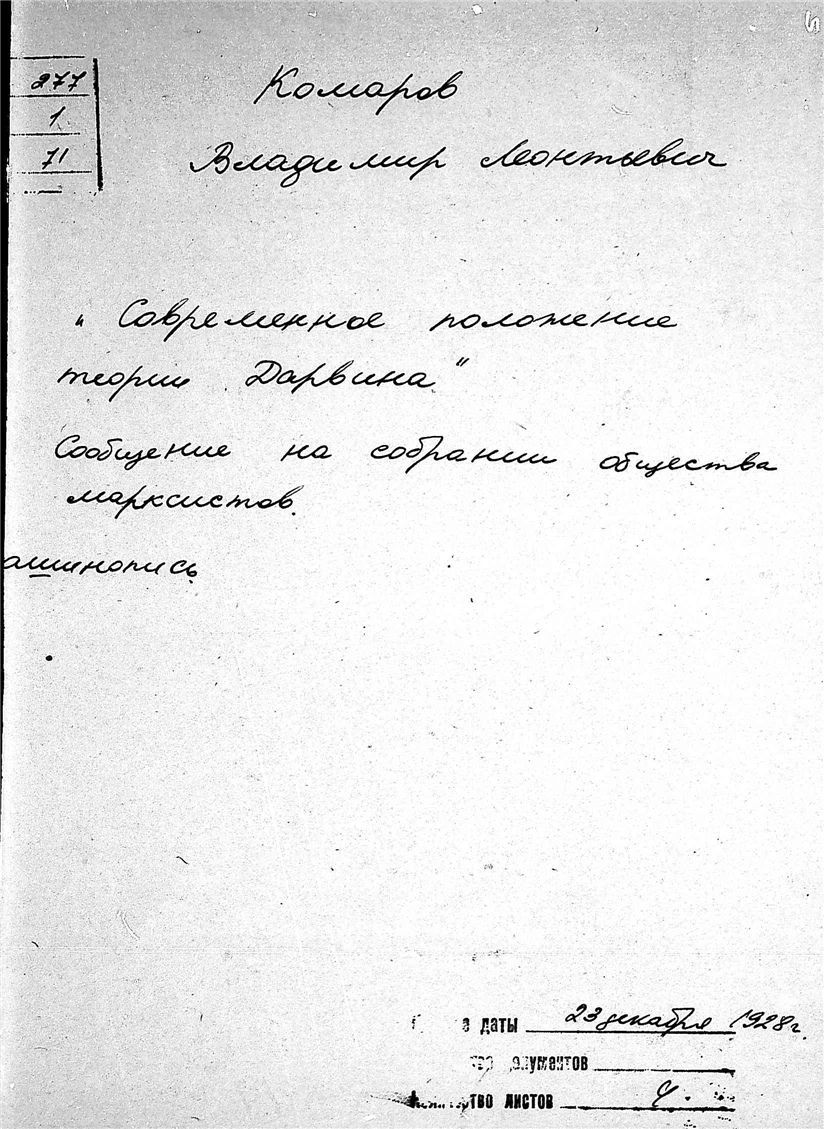 277
1
71
Комаров
Владимир Леонтьевич
„Современное положение
теории Дарвина"
Сообщение на собрании общества
марксистов.
ашинопись
даты 23 декабря 1928 г.
листов